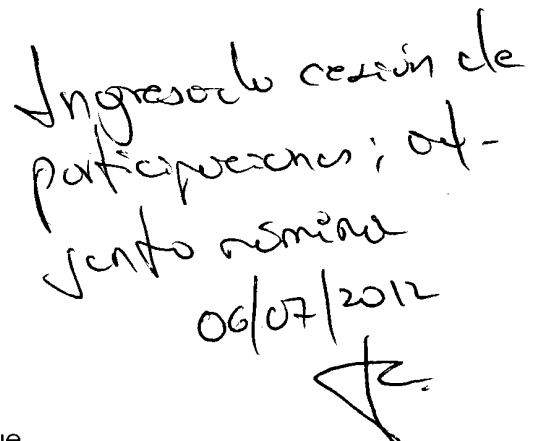 Ingresado cesión de
participaciones; ad-
junto nómina
06/07/2012
ue